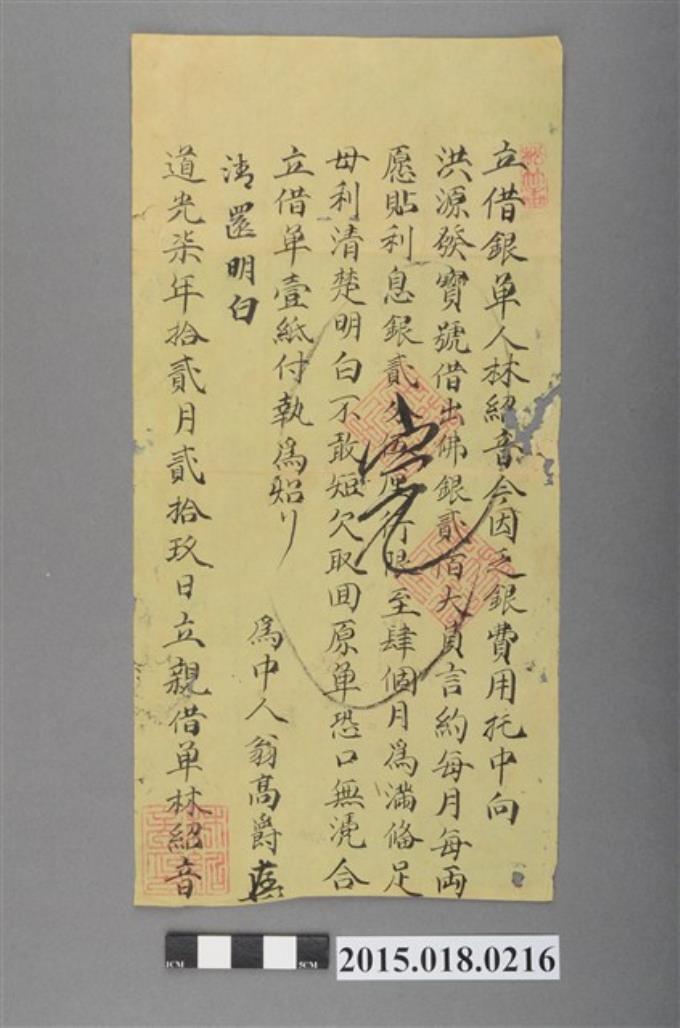 立借銀单人林紹音今因乏銀費用托中向
洪源發寶號借出佛銀貳佰大員言約每月每両
愿貼利息銀貳分 行限至肆個月爲滿俻足
毋利清楚明白不敢短欠取囬原单恐口無凴合
立借单壹紙付執爲炤
爲中人翁高爵
清還明白
道光柒年拾貳月貳拾玖日立親借单林紹音
1CM
5CM
2015.018.0216